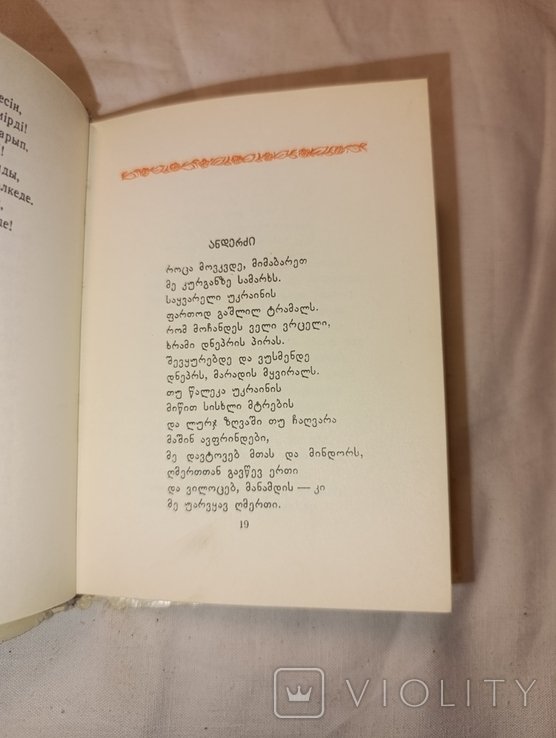 есін,
мірді!
арып,
!
ды,
лкеде.
,
де!
ანდერძი
როცა მოვკვდე, მიმაბარეთ
მე კურგანზე სამარხს.
საყვარელი უკრაინის
ფართოდ გაშლილ ტრამალს.
რომ მოჩანდეს ველი ვრცელი,
ხრამი დნეპრის პირას.
შევყურებდე და ვუსმენდე
დნეპრს, მარადის მყვირალს.
თუ წალეკა უკრაინის
მიწით სისხლი მტრების
და ლურჯ ზღვაში თუ ჩაღვარა
მაშინ ავფრინდები,
მე დავტოვებ მთას და მინდორს,
ღმერთთან გავწევ ერთი
და ვილოცებ, მანამდის — კი
მე უარვყავ ღმერთი.
19
VIOLITY